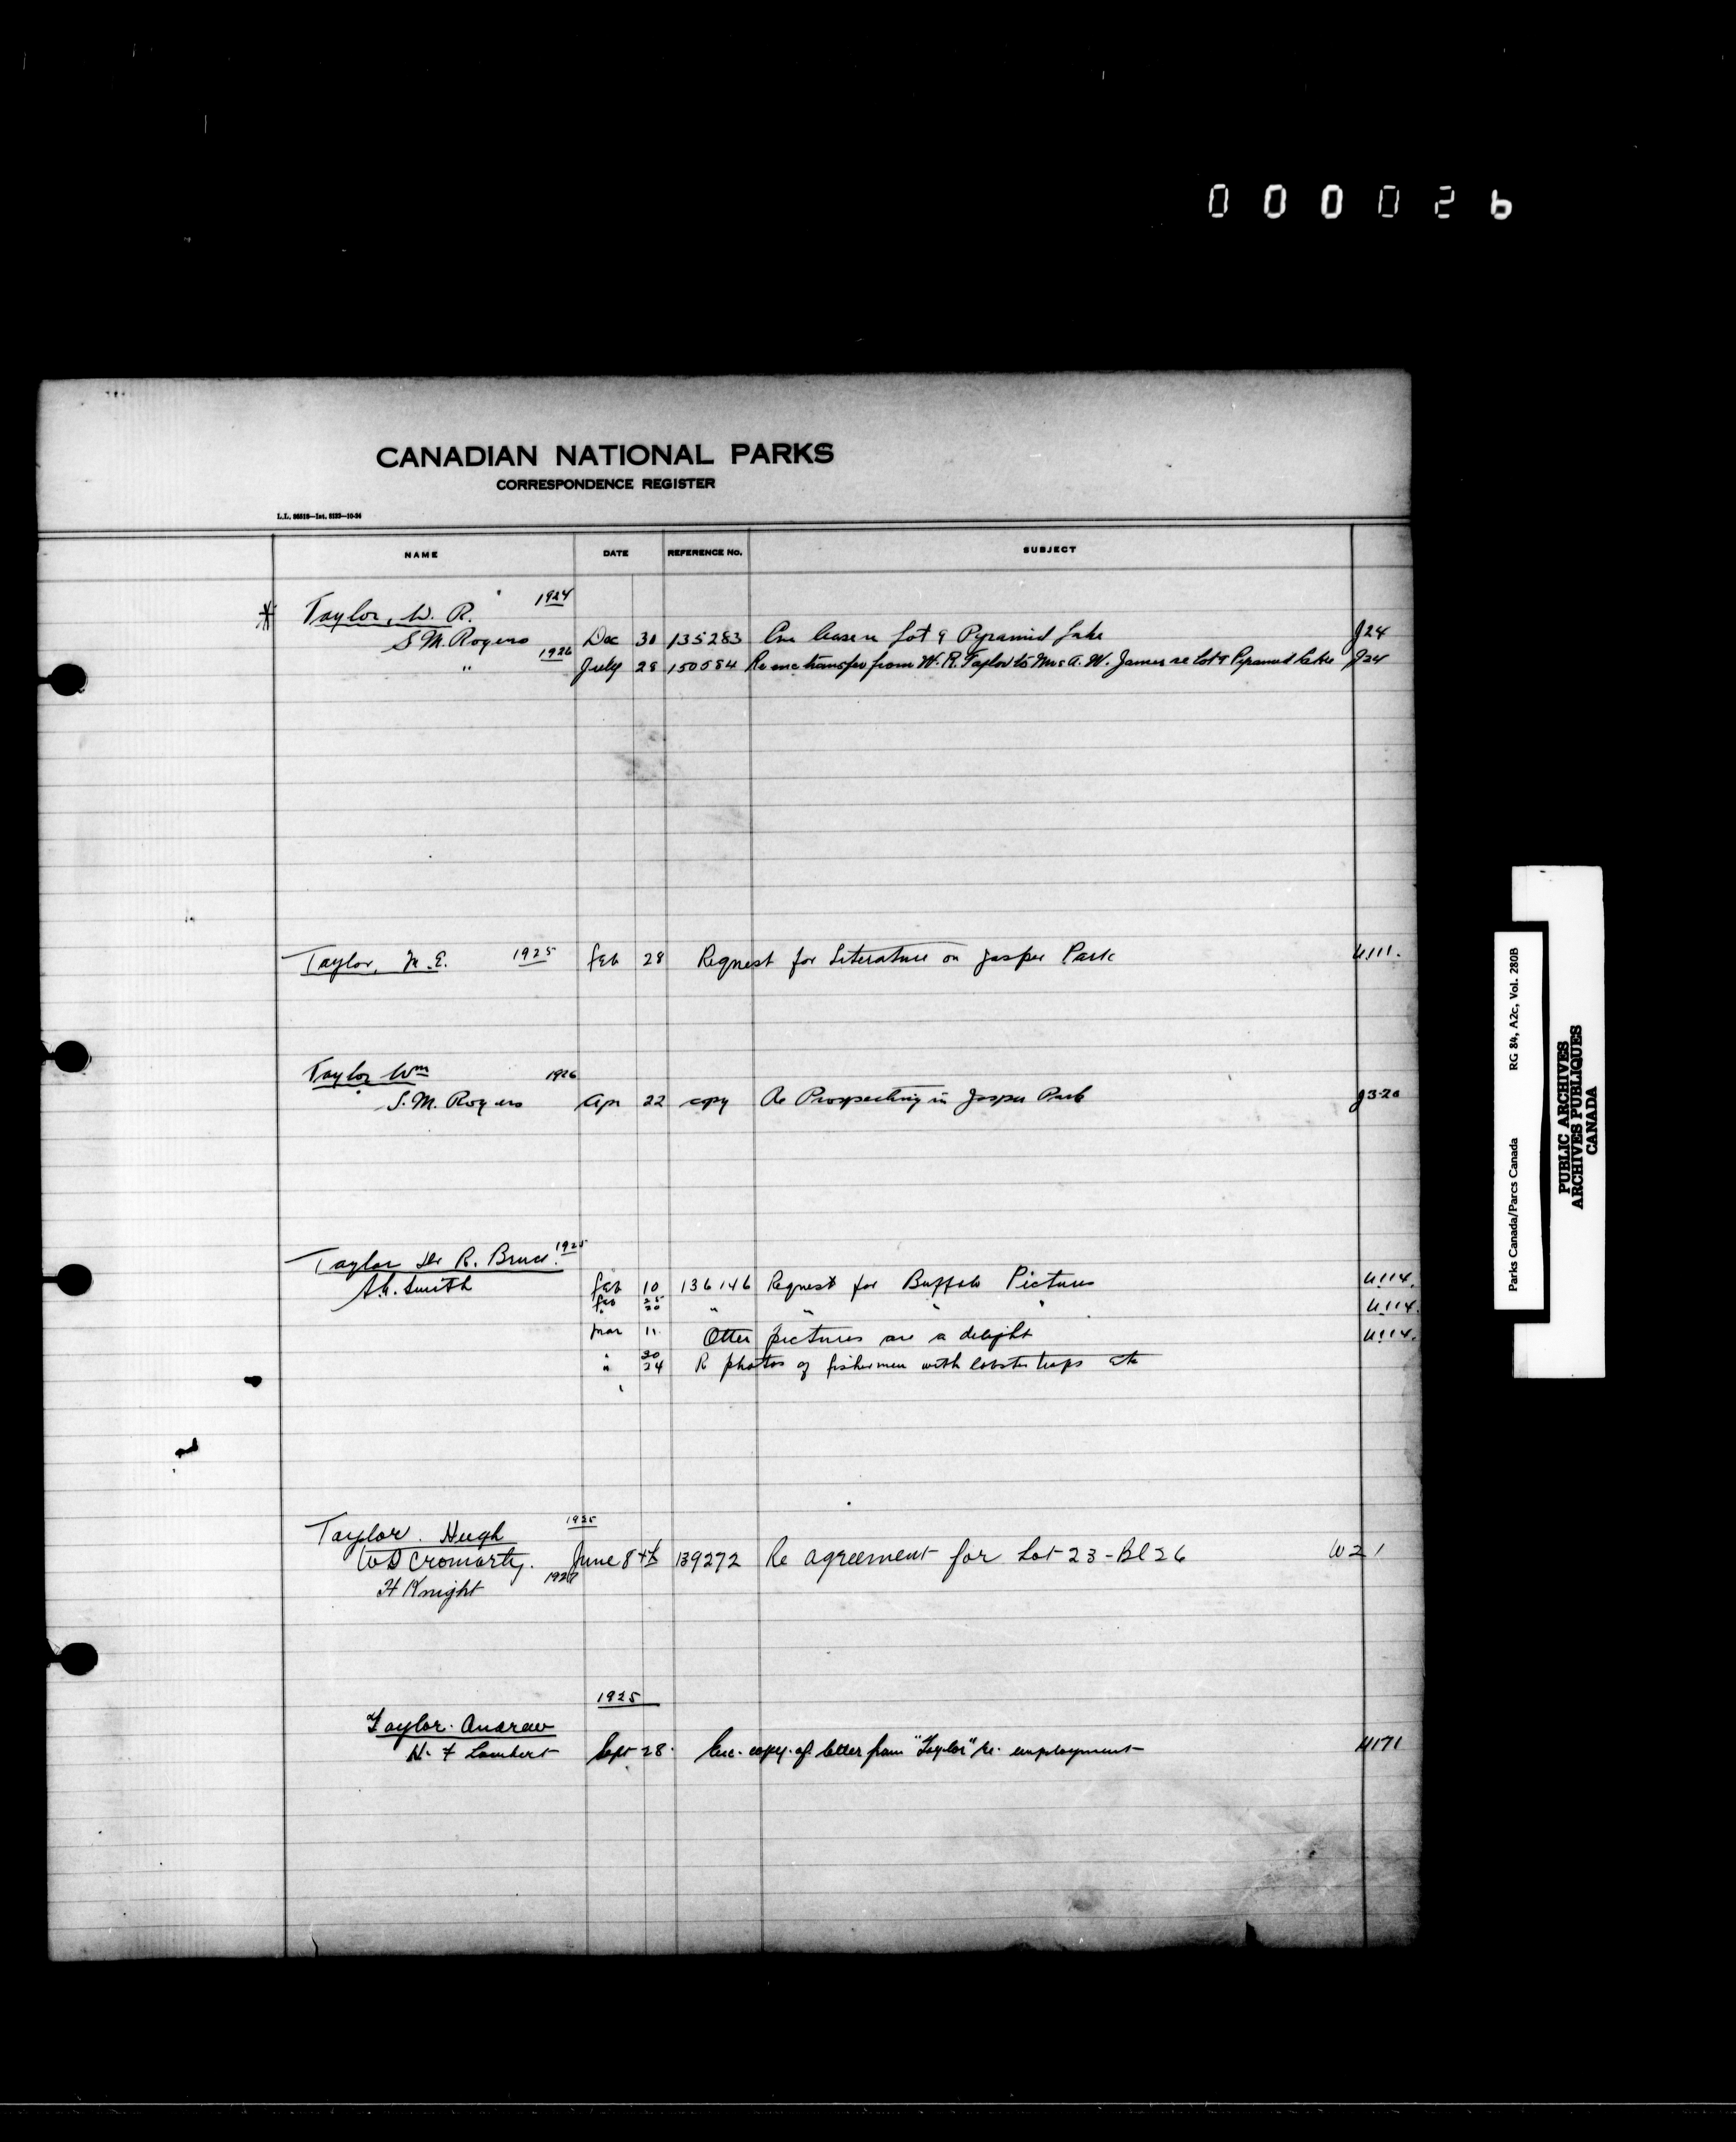 000026
CANADIAN NATIONAL PARKS
CORRESPONDENCE REGISTER
NAME DATE REFERENCE No. SUBJECT
Taylor, W. R. 1924
S. M. Rogers Dec 30 135283 lease re Lot 9 Pyramid Lake J24
" 1926 July 28 150584 Re enc transfer from W. R. Taylor to Mrs A. W. James re Lot 9 Pyramid Lake J24
Taylor, N. E. 1925 Feb 28 Request for Literature on Jasper Park U.111.
Taylor Wm 1926
S. M. Rogers Apr 22 copy Re Prospecting in Jasper Park J3-20
Taylor Dr R. Bruce. 1925
Smith Feb 10 136146 Request for Buffalo Pictures U.114.
Feb 25 20 " " " " U.114.
Mar 11. Otter pictures are a delight U.114.
" 20
" 24 R photos of fishermen with lobster traps etc
Taylor. Hugh 1925
W D Cromarty. June 8th 139272 Re agreement for Lot 23-Bl 26 W21
H Knight 1927
1925
Taylor. Andrew
H. F Lambert Sept 28. Enc. copy. of. letter from "Taylor" re. employment U171
Parks Canada/Parcs Canada RG 84, A2c, Vol. 280B
PUBLIC ARCHIVES
ARCHIVES PUBLIQUES
CANADA